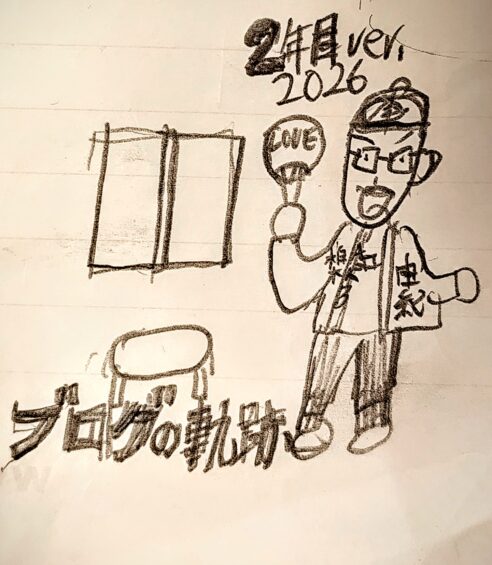 2年目ver.
2026
LOVE
由紀
ブログの軌跡